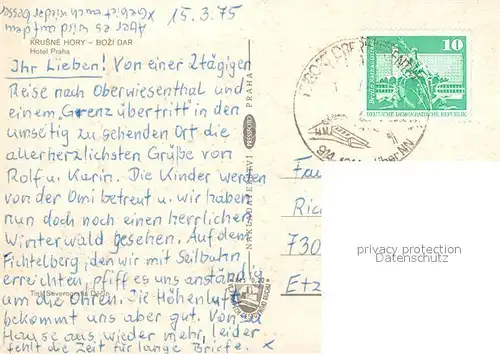 15.3.75
✗Geht es euch wieder besser
Aber es wird auf dem
KRUŠNE HORY – BOŽI DAR
Hotel Praha
Ihr Lieben! Von einer 2tägigen
Reise nach Oberwiesenthal und
einem Grenzübertritt in den
umseitig zu sehenden Ort die
allerherzlichsten Grüße von
Rolf u. Karin. Die Kinder werden
von der Omi betreut u. wir haben
nun doch noch einen herrlichen
Winterwald gesehen. Auf dem
Fichtelberg, den wir mit Seilbahn
erreichten, pfiff es uns anständig
um die Ohren. Die Höhenluft
bekommt uns aber gut. Von zu
Hause aus wieder mehr, leider
fehlt die Zeit für lange Briefe. ✗
PRAHA
PRESSFOTO
10
Berlin Rathausstraße
DEUTSCHE DEMOKRATISCHE REPUBLIK
über NN
Fa
Ric
730
Etz
privacy protection
Datenschutz